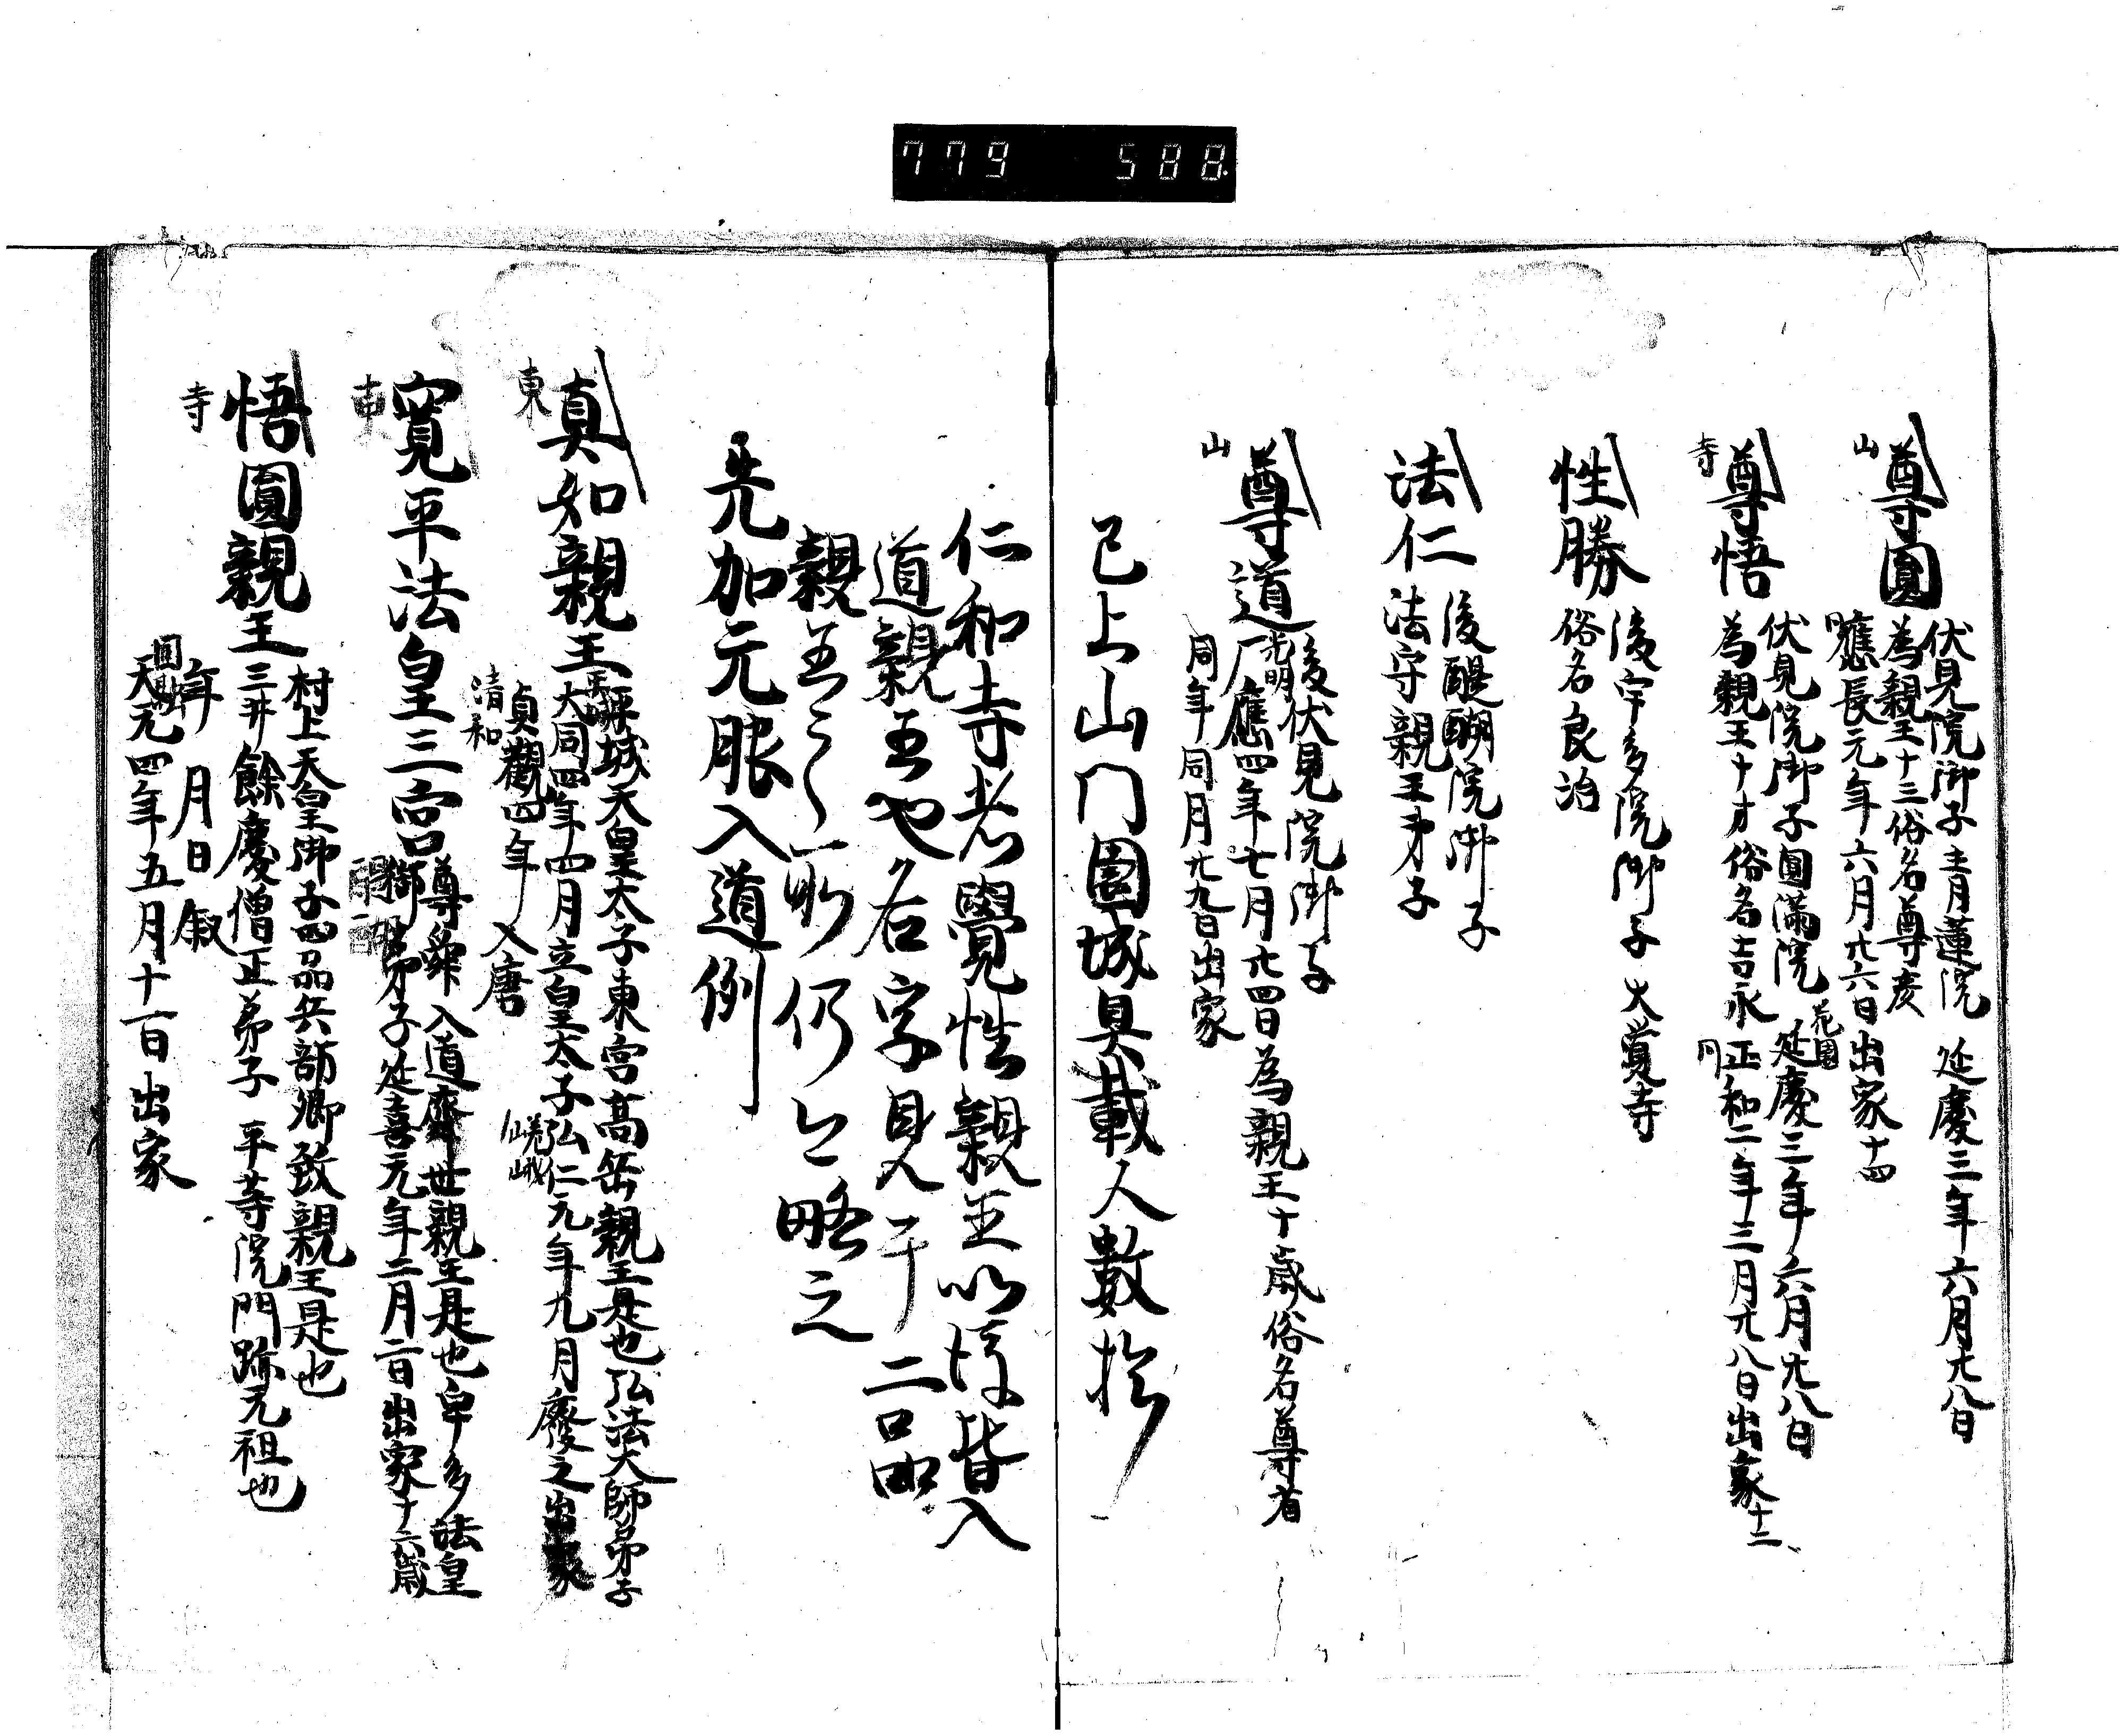 779 588
尊圓
山
伏見院御子青蓮院 延慶三年六月廿八日
為親王十三俗名尊彦
應長元年六月廿六日出家十四
尊悟
寺
伏見院御子圓滿院 延慶三年六月廿八日
為親王十才俗名吉永 正和二年三月廿八日出家十二
花園
性勝
後宇多院御子 大覚寺
俗名良治
法仁
後醍醐院御子
法守親王弟子
尊道
山
後伏見院御子
光明
應四年七月廿四日為親王十歳俗名尊省
同年同月廿九日出家
已上山門園城具載人數於
仁和寺者覺性親王以後皆入
道親王也名字見于二品
親王之所仍今略之
先加元服入道例
真如親王
東
平城天皇太子東宮高岳親王是也弘法大師弟子
大同四年四月立皇太子弘仁元年九月廢之出家
嵯峨
貞觀四年入唐
清和
寛平法皇三宮
東
入道齊世親王是也
弟子延喜元年二月二日出家十六歳
悟圓親王
寺
村上天皇御子四品兵部卿致親王是也
三井餘慶僧正弟子 平等院門跡元祖也
年 月 日 叙
天元四年五月十一日出家